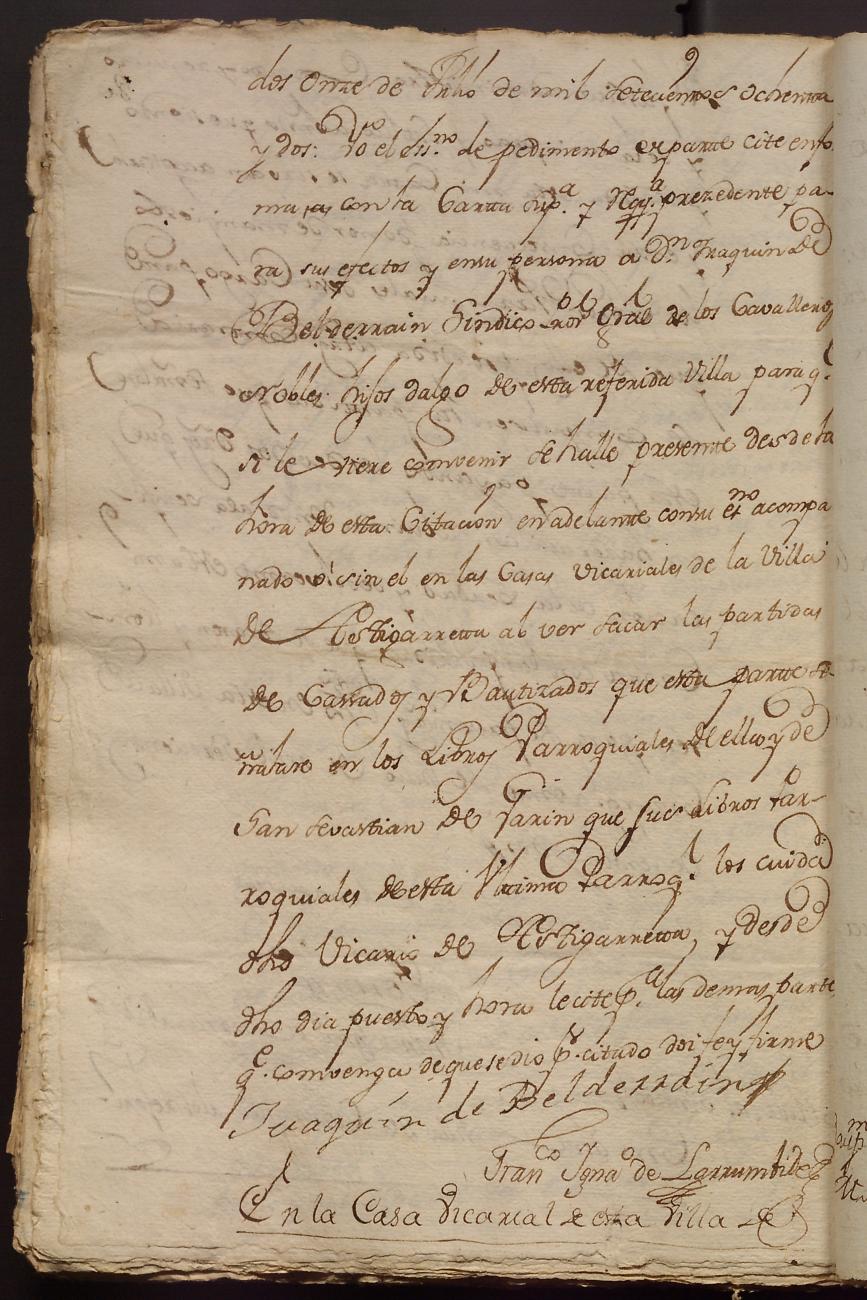 dos Onze de Julio de mil Setecientos ochenta
y dos: Yo el Ess.no de pedimento ex parte cite en fo
ma tal con la Carta Sup.a y Req.a prezedente pa-
ra sus efectos y en su persona a D.n Juaquin de
Belderrain Sindico Pror Gral de los Cavalleros
Nobles hijos dalgo de esta referida Villa para q.e
si le viere convenir se halle presente desde la
hora de esta Citacion en adelante con su es.no acompa
nado o sin el en las Casas Vicariales de la Villa
de Astigarreta al ver sacar las partidas
de Cassados y Bautizados que esta parte se
ñalare en los Libros Parroquiales de ella y de
San Sevastian de Garin que sus Libros Par-
roquiales de esta Ultima Parroq.l los cuida
dho Vicario de Astigarreta, y desde
dho dia puesto y hora le cite p.a las demas parte
q.e convenga de que se dio p.r citado doi fe y firme
Juaquin de Belderrain
Fran.co Ign.o de Larrumbide
En la Casa Vicarial de esta Villa de